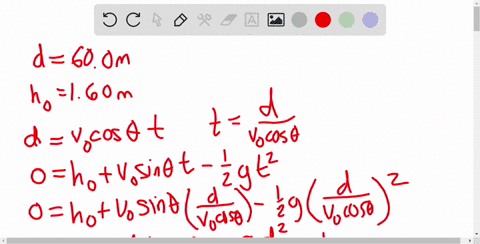 d = 60.0m
h₀ = 1.60m
d = v₀cosθ t    t = d/(v₀cosθ)
0 = h₀ + v₀sinθ t - ½gt²
0 = h₀ + v₀sinθ(d/(v₀cosθ)) - ½g(d/(v₀cosθ))²